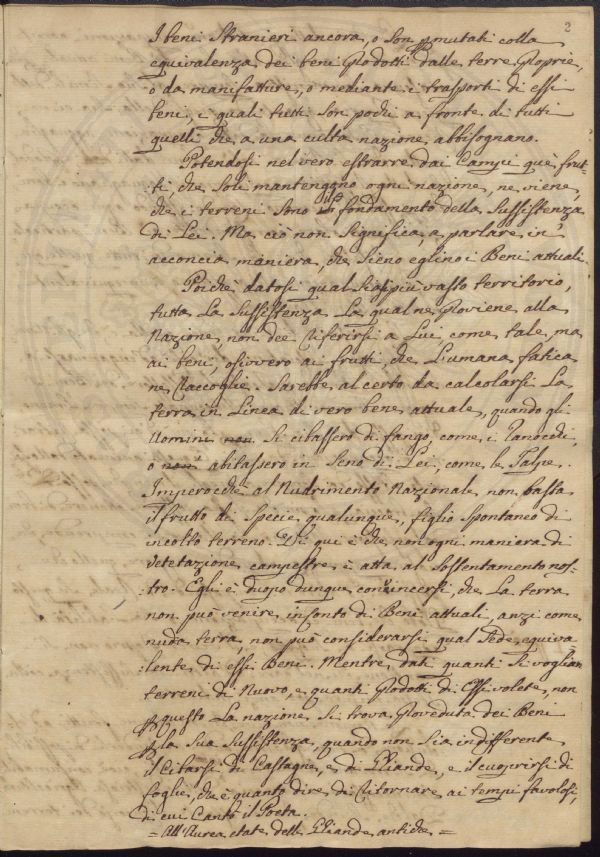 2
I beni Stranieri ancora, o son pmutati colla
equivalenza dei beni Prodotti dalle terre Proprie,
o da manifatture, o mediante i trasporti di essi
beni, i quali tutti son pochi a fronte di tutti
quelli che a una culta nazione abbisognano.
Potendosi nel vero estrarre dai Campi que' frut-
ti, che soli mantengono ogni nazione, ne viene,
che i terreni sono fondamento della Sussistenza
di Lei. Ma ciò non significa, a parlare in
acconcia maniera, che sieno eglino i Beni attuali.
Poiche datosi qual siasi più vasto territorio,
tutta La Sussistenza La qual ne Proviene alla
Nazione, non dee riferirsi a Lui come tale, ma
ai beni, ossivvero ai frutti, che L'umana fatica
ne Raccoglie. Sarebbe al certo da calcolarsi La
terra in Linea di vero bene attuale, quando gli
Uomini non si cibassero di fango, come i Ranocchi,
o non abitassero in Seno di Lei, come le Talpe.
Imperocchè al Nudrimento Nazionale non basta
il frutto di Specie qualunque, figlio spontaneo di
incolto terreno. Di qui è che non ogni maniera di
Vetetazione campestre è atta al Sostentamento nos-
tro. Egli è duopo dunque convincersi, che La terra
non può venire in conto di Beni attuali, anzi come
nuda terra, non può considerarsi qual Sede equiva
lente di essi Beni. Mentre dati quanti si voglian
terreni di Nuovo, e quanti Prodotti di Essi volete, non
p questo La nazione si trova Proveduta dei Beni
p la sua Sussistenza, quando non sia indifferente
il Cibarsi di Castagne, e di Ghiande, e il cuoprirsi di
foglie, che è quanto dire di Ritornare ai tempi favolosi,
di cui Cantò il Poeta.
= All'Aurea etate delle Ghiande antiche =